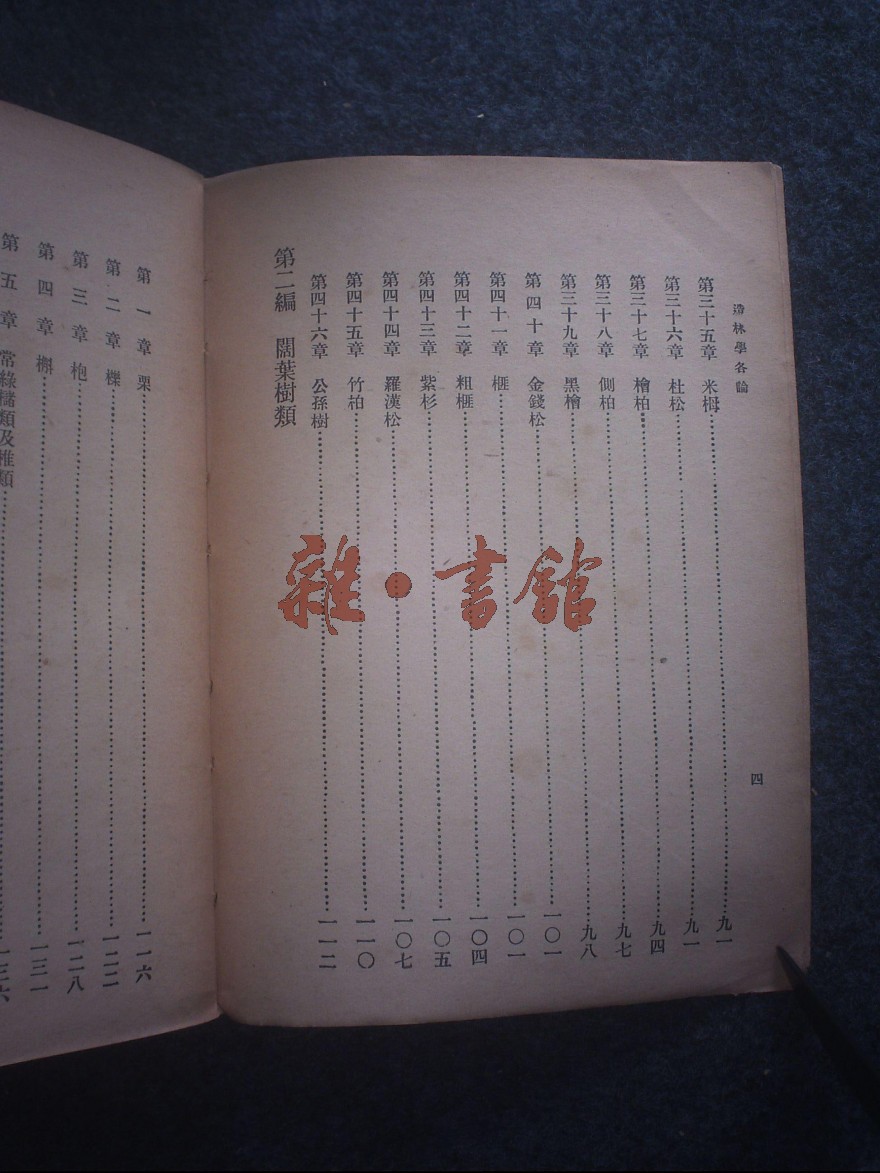 造林學各論
第三十五章 米栂 九一
第三十六章 杜松 九一
第三十七章 檜柏 九四
第三十八章 側柏 九七
第三十九章 黑檜 九八
第四十章 金錢松 一〇一
第四十一章 榧 一〇一
第四十二章 粗榧 一〇四
第四十三章 紫杉 一〇五
第四十四章 羅漢松 一〇七
第四十五章 竹柏 一一〇
第四十六章 公孫樹 一一二
第二編 闊葉樹類
四
第一章 栗 一一六
第二章 櫟 一二二
第三章 枹 一二八
第四章 槲 一三一
第五章 常綠櫧類及椎類 一三六
雜·書館